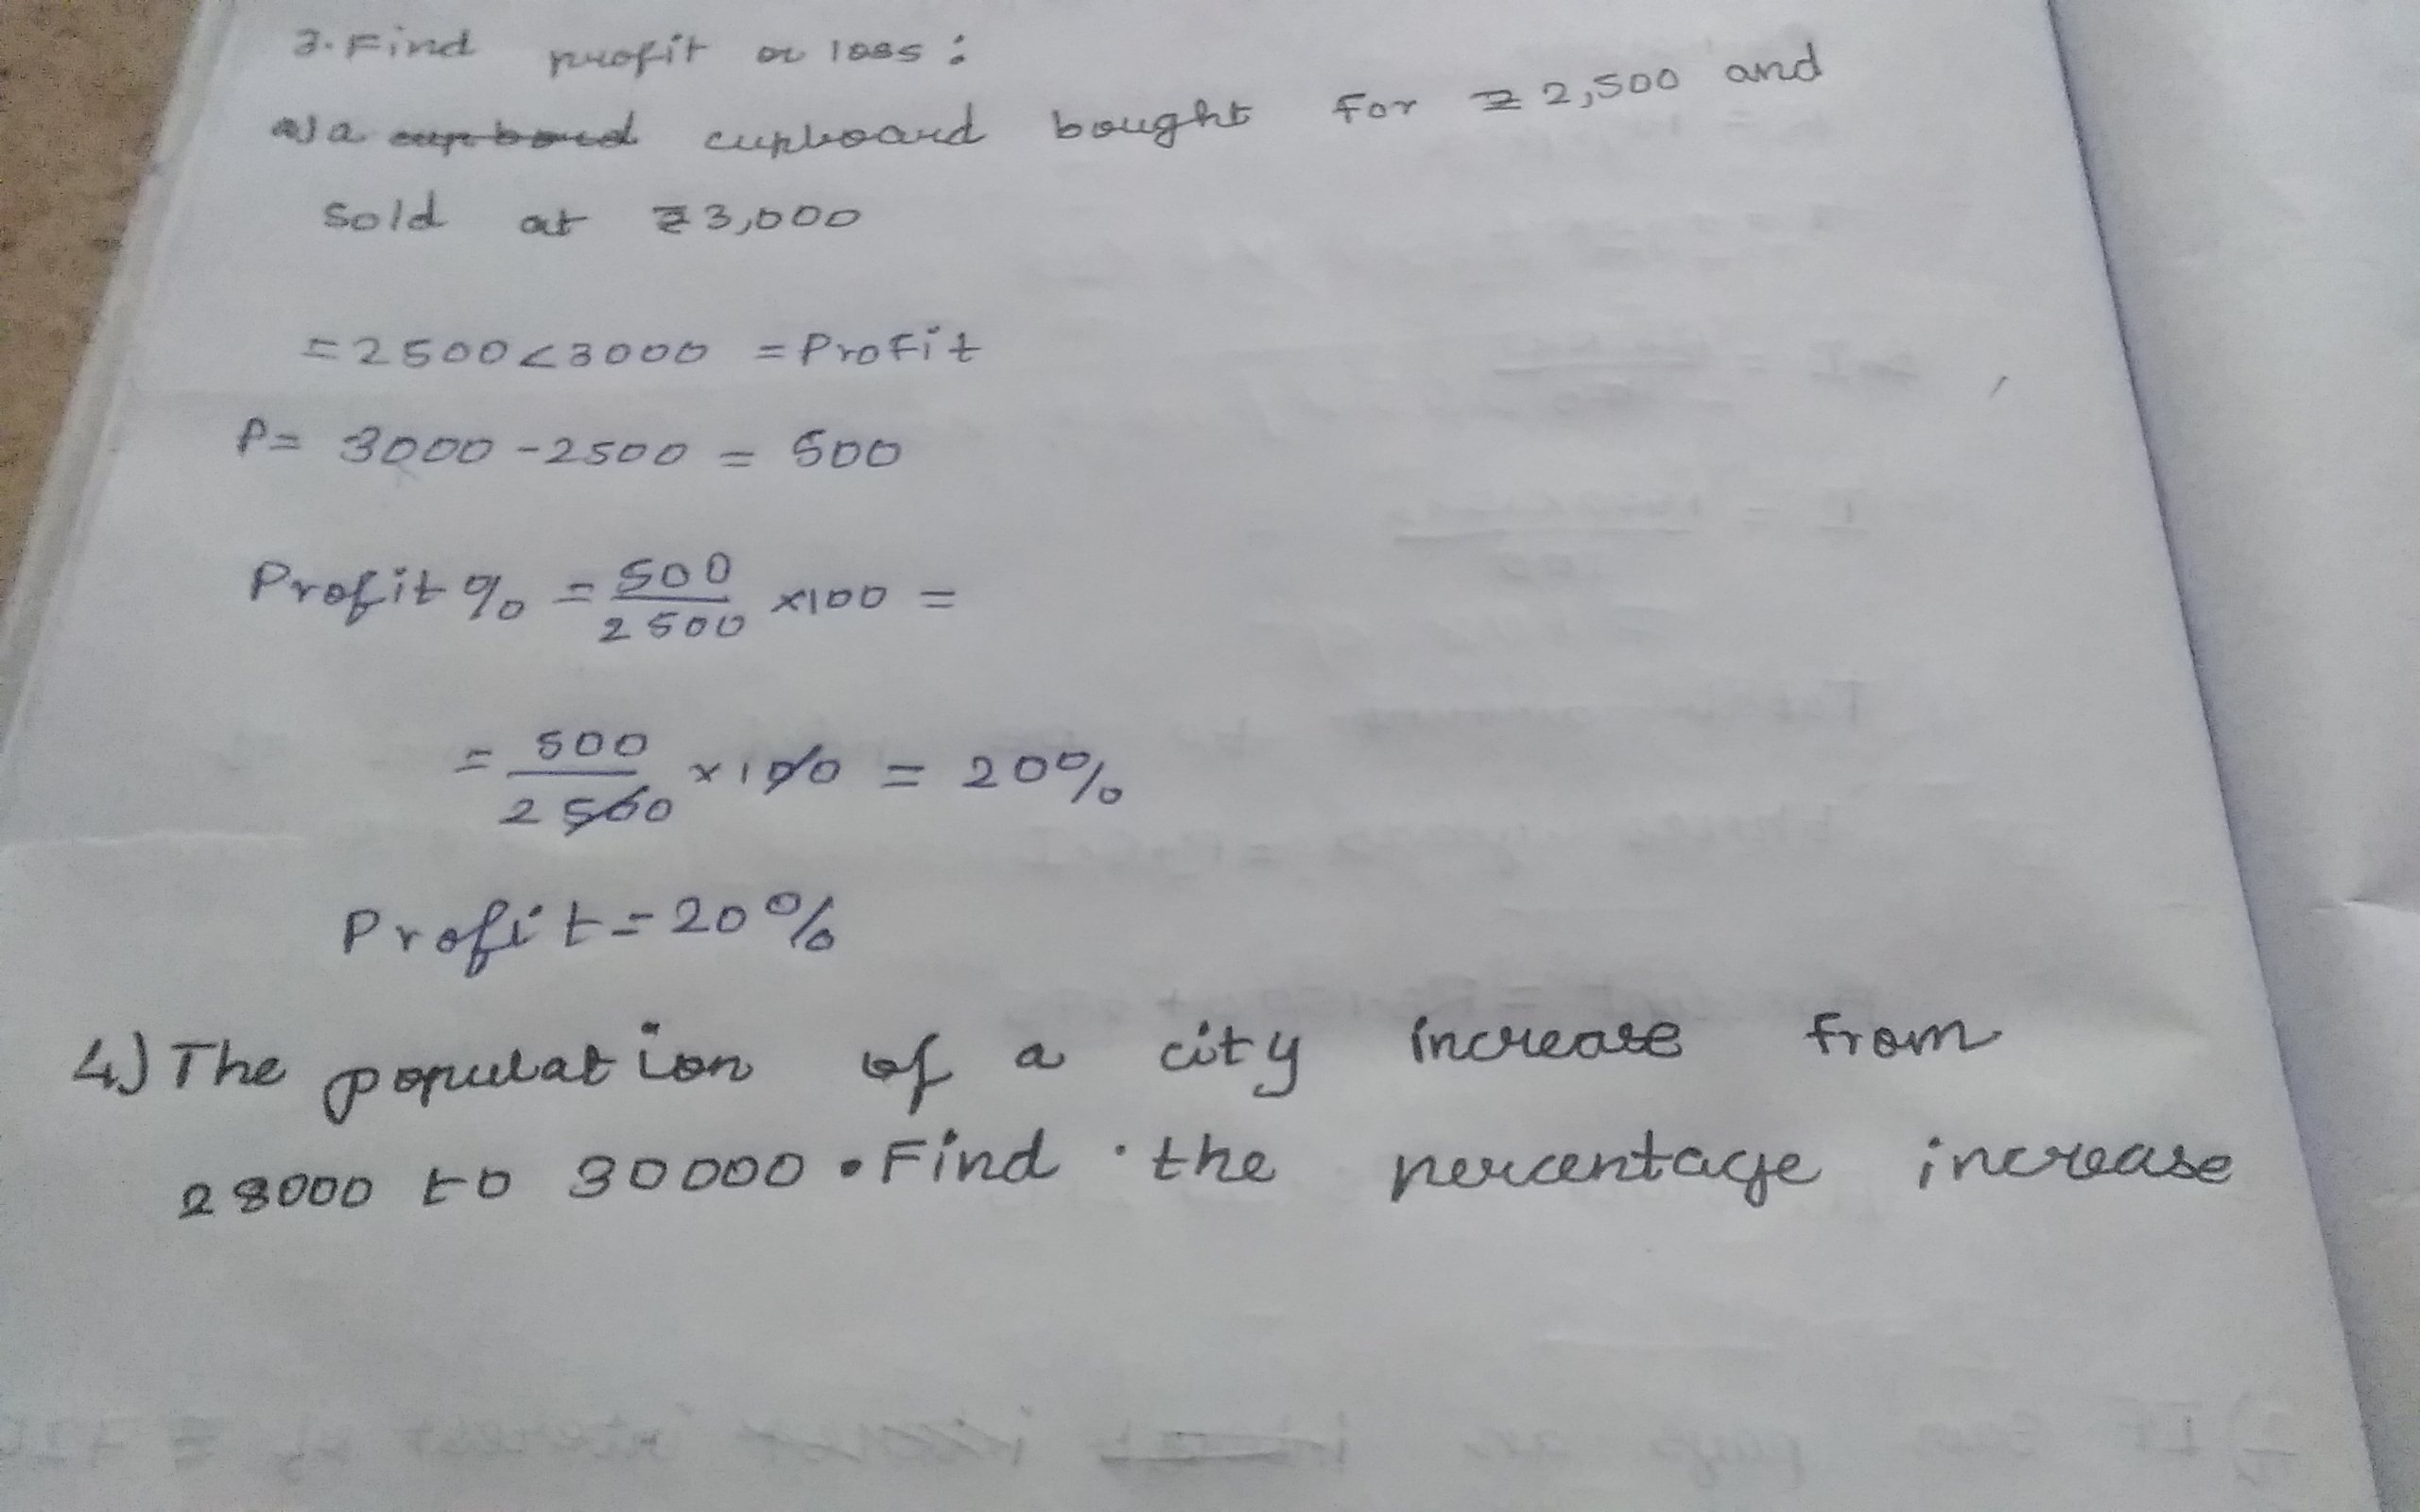 3. Find profit or loss :
a) a cupboard cupboard bought for ₹ 2,500 and
sold at ₹ 3,000
= 2500 < 3000 = Profit
P = 3000 - 2500 = 500
Profit % = 500/2500 × 100 =
= 500/2500 × 100 = 20%
Profit = 20%
4) The population of a city increase from
28000 to 30000 . Find the percentage increase